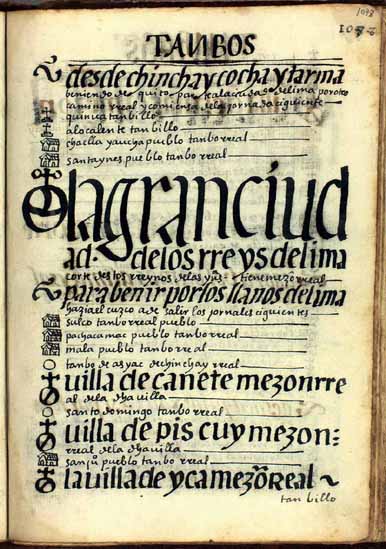 1098
TANBOS
desde chinchay cocha y tarma
beniendo de quito para la ciudad de lima por otro
camino rreal y comiensa dela jornada ciguiente
quinua tanbillo
alocalente tanbillo
chaclla yaucha pueblo tanbo rreal
santa ynes pueblo tanbo rreal
la gran ciud
ad · de los rreys de lima
corte des los rreynos delas yns tiene mezon rreal
para benir por los llanos de lima
hazia el cuzco a de salir los jornales ciguientes
sulco tanbo rreal pueblo
pachacamac pueblo tanbo rreal
mala pueblo tanbo rreal
tanbo de asyac de chinchay rreal
uilla de cañete mezon rre
al de la dha uilla
santo domingo tanbo rreal
uilla de pis cuy mezon:
rreal de la dha uilla
san ju° pueblo tanbo rreal
la uilla de yca mezō real ~
tanbillo